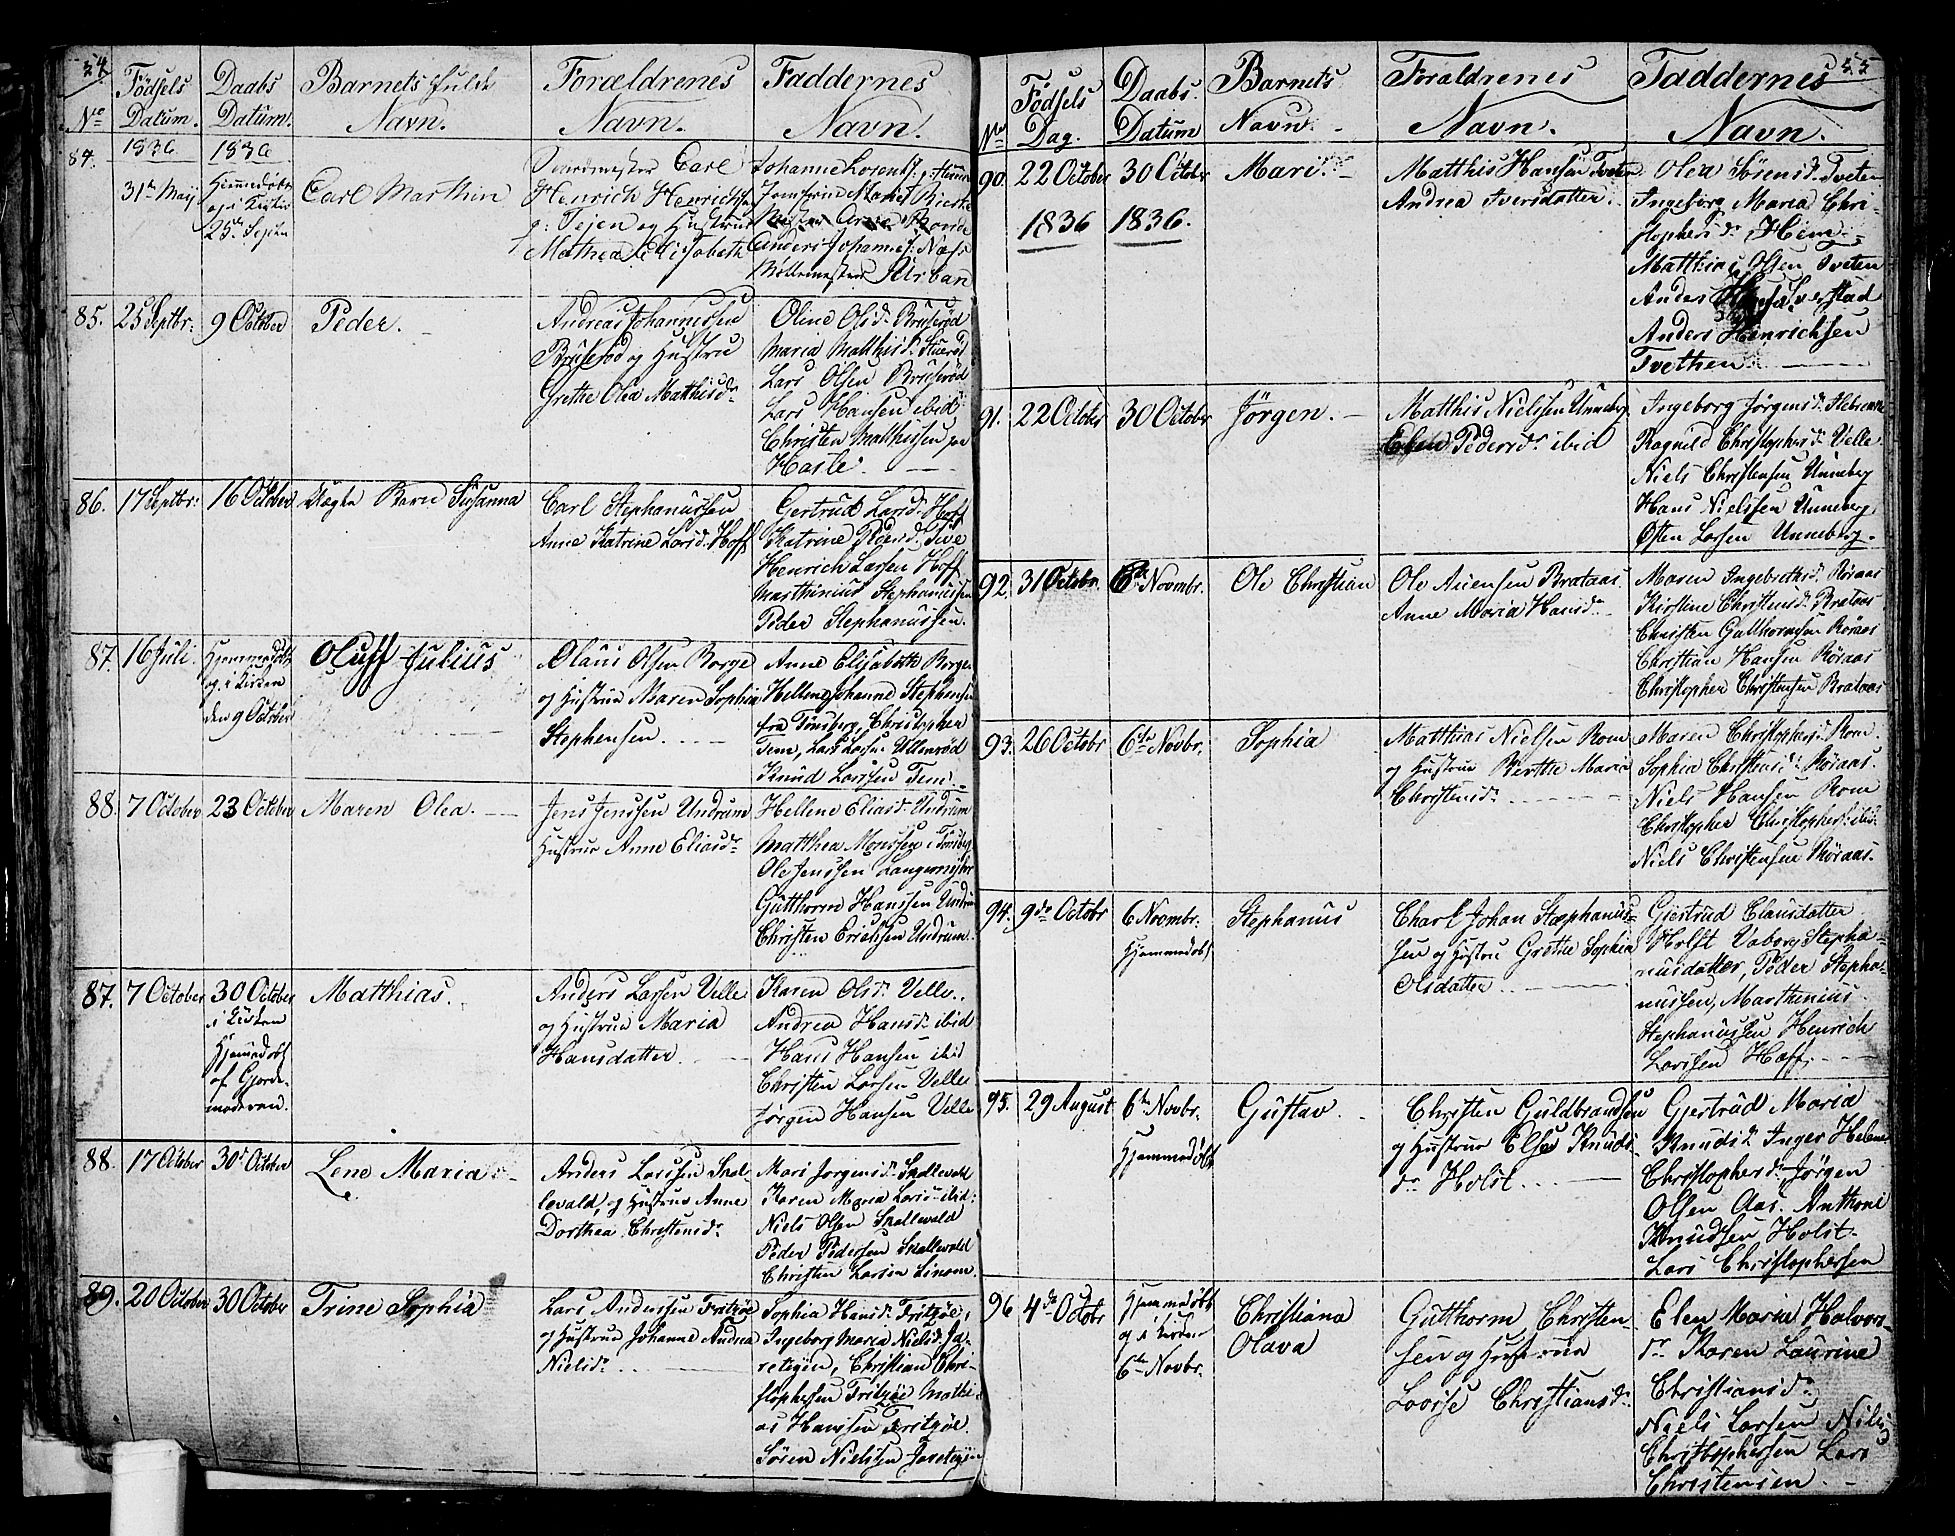 54
Nº
Fødsels
Datum.
Daabs
Datum.
Barnets fulde
Navn.
Forældrenes
Navn.
Faddernes
Navn.
84.
1836
31te Maij
1836
Hiemmedøbt
og i Kirken
25de Septbr
Carl Marthin
Carl
Henrich Henrichsen
og Hustrue
Mathea Elisabeth
Johanne Lorentsd:
Anders Johannes: Næss
Møllemester Stirban
85.
25 Septbr:
9 October
Peder.
Andreas Johannessen
Bruserød og Hustru
Grethe Olea Mathisdr
Oline Olsdr Bruserød
Maria Matthisdr Stuerød
Lars Olsen Bruserød
Lars Hansen ibid
Christen Matthissen paa
Hasle.
86.
17 Septbr:
16 October
Uægte Barn Susanna
Carl Stephanussen
Anne Katrine Larsdr Hoff
Gertrud Larsdr Hoff
Katrine
Henrich Larsen Hoff
Marthinius Stephanussen
Peder Stephanussen.
87.
16 Juli.
Hjemmedøbt
og i Kirken
den 9 October
Oluff Julius
Olaus Olsen Borge
og Hustrue Maren Sophia
Stephensen.
Anne Elisabeth Borge
Hellene Johanne Stephensen
fra Tønsberg, Christopher
Tem, Lars Larsen Ullenrød
Knud Larssen Tem.
88.
7 October
23 October
Maren Olea.
Jens Jenssen Undrum
Hustrue Anne Eliasdr
Hellene Eliasdr Undrum
Matthea Monssen i Tønsberg
Ole Jenssen
Gutthorm Hanssen Undrum
Christen Erichsen Undrum.
87.
7 October
30 October
i Kirken
Hjemmedøbt
af Gjorde-
moderen.
Matthias.
Anders Larsen Velle
og Hustrue Maria
Hansdatter.
Karen Olsdr Velle.
Andrea Hansdr ibid
Hans Hansen ibid
Christen Larsen Velle
Jørgen Hansen Velle
88.
17 October
30te October
Lene Maria.
Anders Larssen Skal-
levald, og Hustrue Anne
Dorthea Christensdr
Mari Jørgensdr Skallevald
Karen Maria Larsdr ibid:
Niels Olsen Skallevald
Peder Pedersen Skallevald
Christen Larsen Linom.
89.
20 October
30 October
Trine Sophia
Lars Anderssen Fritzøe
og Hustrue Johanne Andrea
Nielsdr
Sophia Hansdr Fritzøe,
Ingeborg Maria Nielsdr Ja-
reteigen, Christian Chri-
stophersen Fritzøe Mathi-
as Hanssen Fritzøe.
Søren Nielssen Jareteigen
55
No
Fødsels
Dag.
Daabs
Datum
Barnets
Navn.
Foraldrenes
Navn.
Faddernes
Navn.
90.
22 October
1836
30 Octobr
1836.
Mari.
Matthis Hansen Tveten
Andrea Iversdatter.
Olea Sørensdr Tveten
Ingeborg Maria Chri-
stophersdr Hem.
Matthias Olsen Tveten
Anders Iverstad
Anders Henrichsen
Tvethen.
91.
22 October
30 October
Jörgen.
Matthis Nielssen Unneberg
Ellen Pedersdr ibid
Ingeborg Jørgensdr
Ragnild Christophersdr Velle
Niels Christensen Unneberg
Hans Nielssen Unneberg
Osten Larsen Unneberg.
92.
31 Octobr.
6te Novmbr.
Ole Christian
Ole Auensen Brataas.
Anne Maria Hansdr
Maren Ingebrethsdr Røraas
Kirstine Christensdr Brataas
Christen Gutthormsen Røraas
Christian Hansen Røraas
Christopher Christensen Brataas
93.
26 Octobr
6te Novbr.
Sophia
Matthias Nielsen Rom
og Hustrue Berthe Maria
Christensdr
Maren Christophersdr Rom.
Sophia Christensdr Røraas.
Niels Hansen Rom
Christopher Christophers: ibid:
Niels Christensen Røraas.
94.
9de Octobr
6 Novmbr.
Hjemmedøbt
Stephanus
Charl Johan Stæphanus-
sen og Hustru Grethe Sophia
Olsdatter
Giertrud Clausdatter
Holst Vaborg Stepha-
nusdatter, Peder Stepha-
nussen, Marthenius
Stephanussen Henrich
Larssen Hoff.
95.
29 August
6te Novbr.
Hjemmedøbt
Gustav.
Christen Guldbrandsen
og Hustrue Else Knuds-
dr Holst.
Gjertrud Maria
Knudsdr Inger Helene
Christophersdr Jørgen
Olsen Aas. Anthoni
Knudsen Holst.
Lars Christophersen
96
4de Octobr
Hjemmedøbt
og i Kirken
6te Novbr.
Christiana
Olava
Gutthorm Christen-
sen og Hustrue
Lovise Christiansdr
Elen Maria Halvors-
dr Karen Laurine
Christiansdr
Niels Larsen Niels
Christophersen Lars
Christensen.